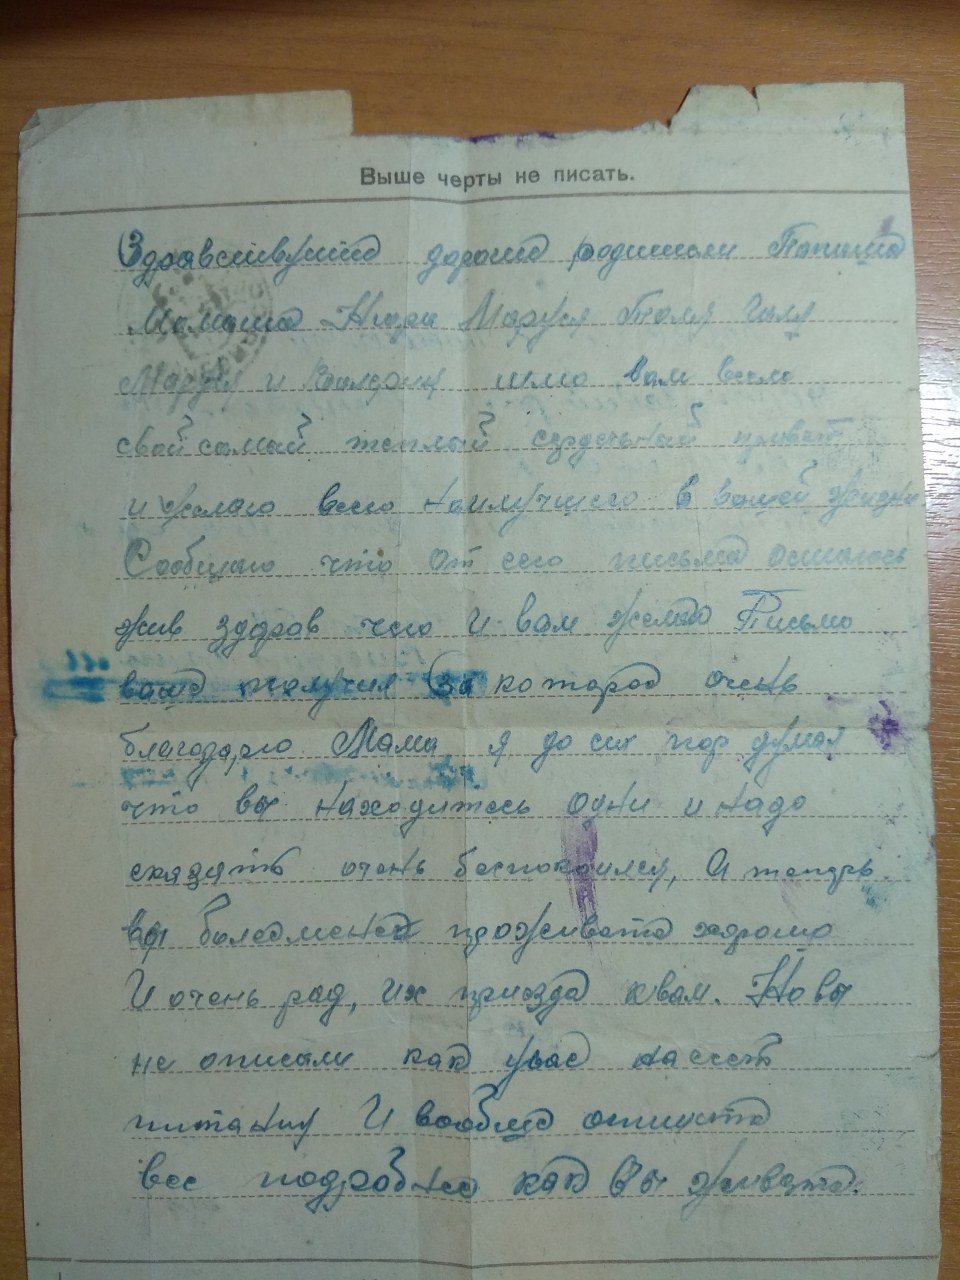 Выше черты не писать.
Здравствуйте дорогие родители Папаша
Мамаша Нюра Маруся Толя Галя
Маруся и шлю вам всем
свой самый теплый сердечный привет
и желаю всего наилучшего в вашей жизни
Сообщаю что от сего письма остаюсь
жив здоров чего и вам желаю Письмо
ваше получил за которое очень
благодарю. Мама я до сих пор думал
что вы находитесь одни и надо
сказать очень беспокоился, А теперь
вы более менее проживате хорошо
И очень рад, их приезда к вам. Но вы
не описали как увас насчет
питания И вообще опишите
все подробнее как вы живете.